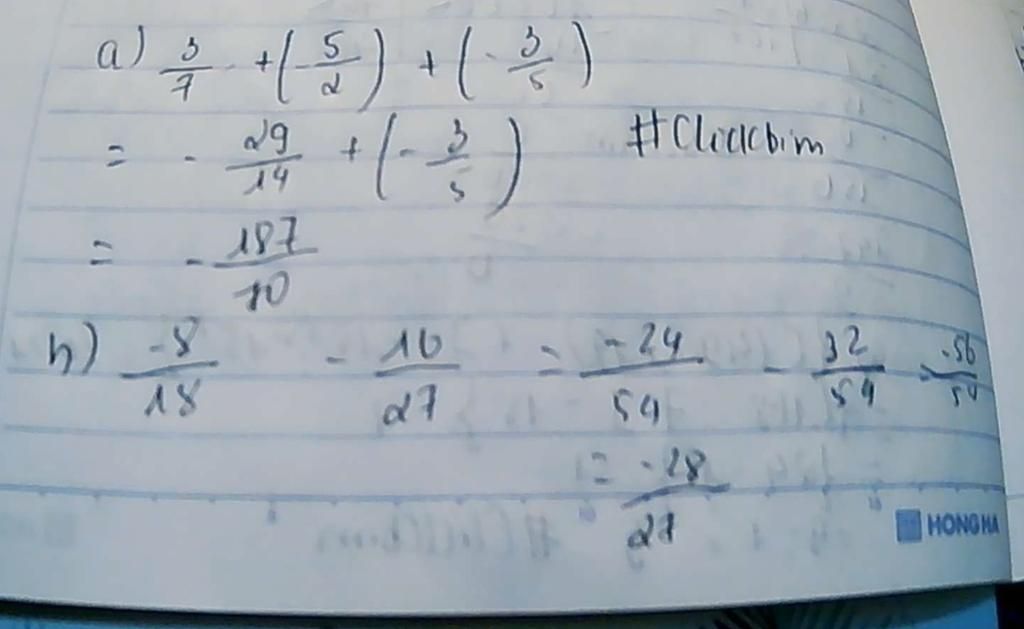 a) 3/7 + (-5/2) + (-3/5)
= -29/14 + (-3/5) #Clickbim
= -187/70
b) -8/18 - 16/27 = -24/54 - 32/54 = -56/54
= -28/27
HONG HA